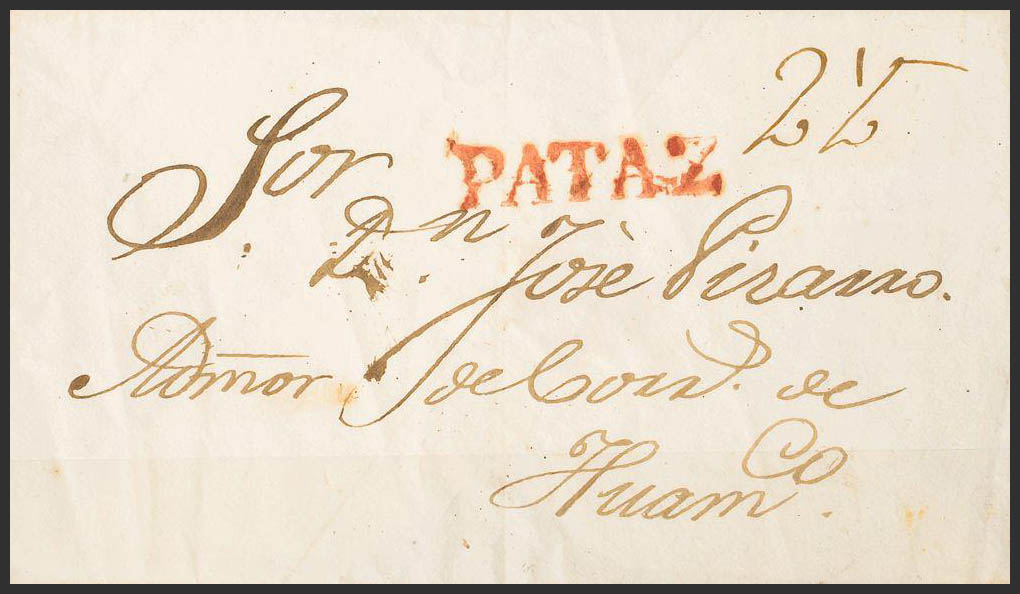 Sor
PATAZ
Dn. José Pizarro.
Admor de Corrs. de
Huamco.